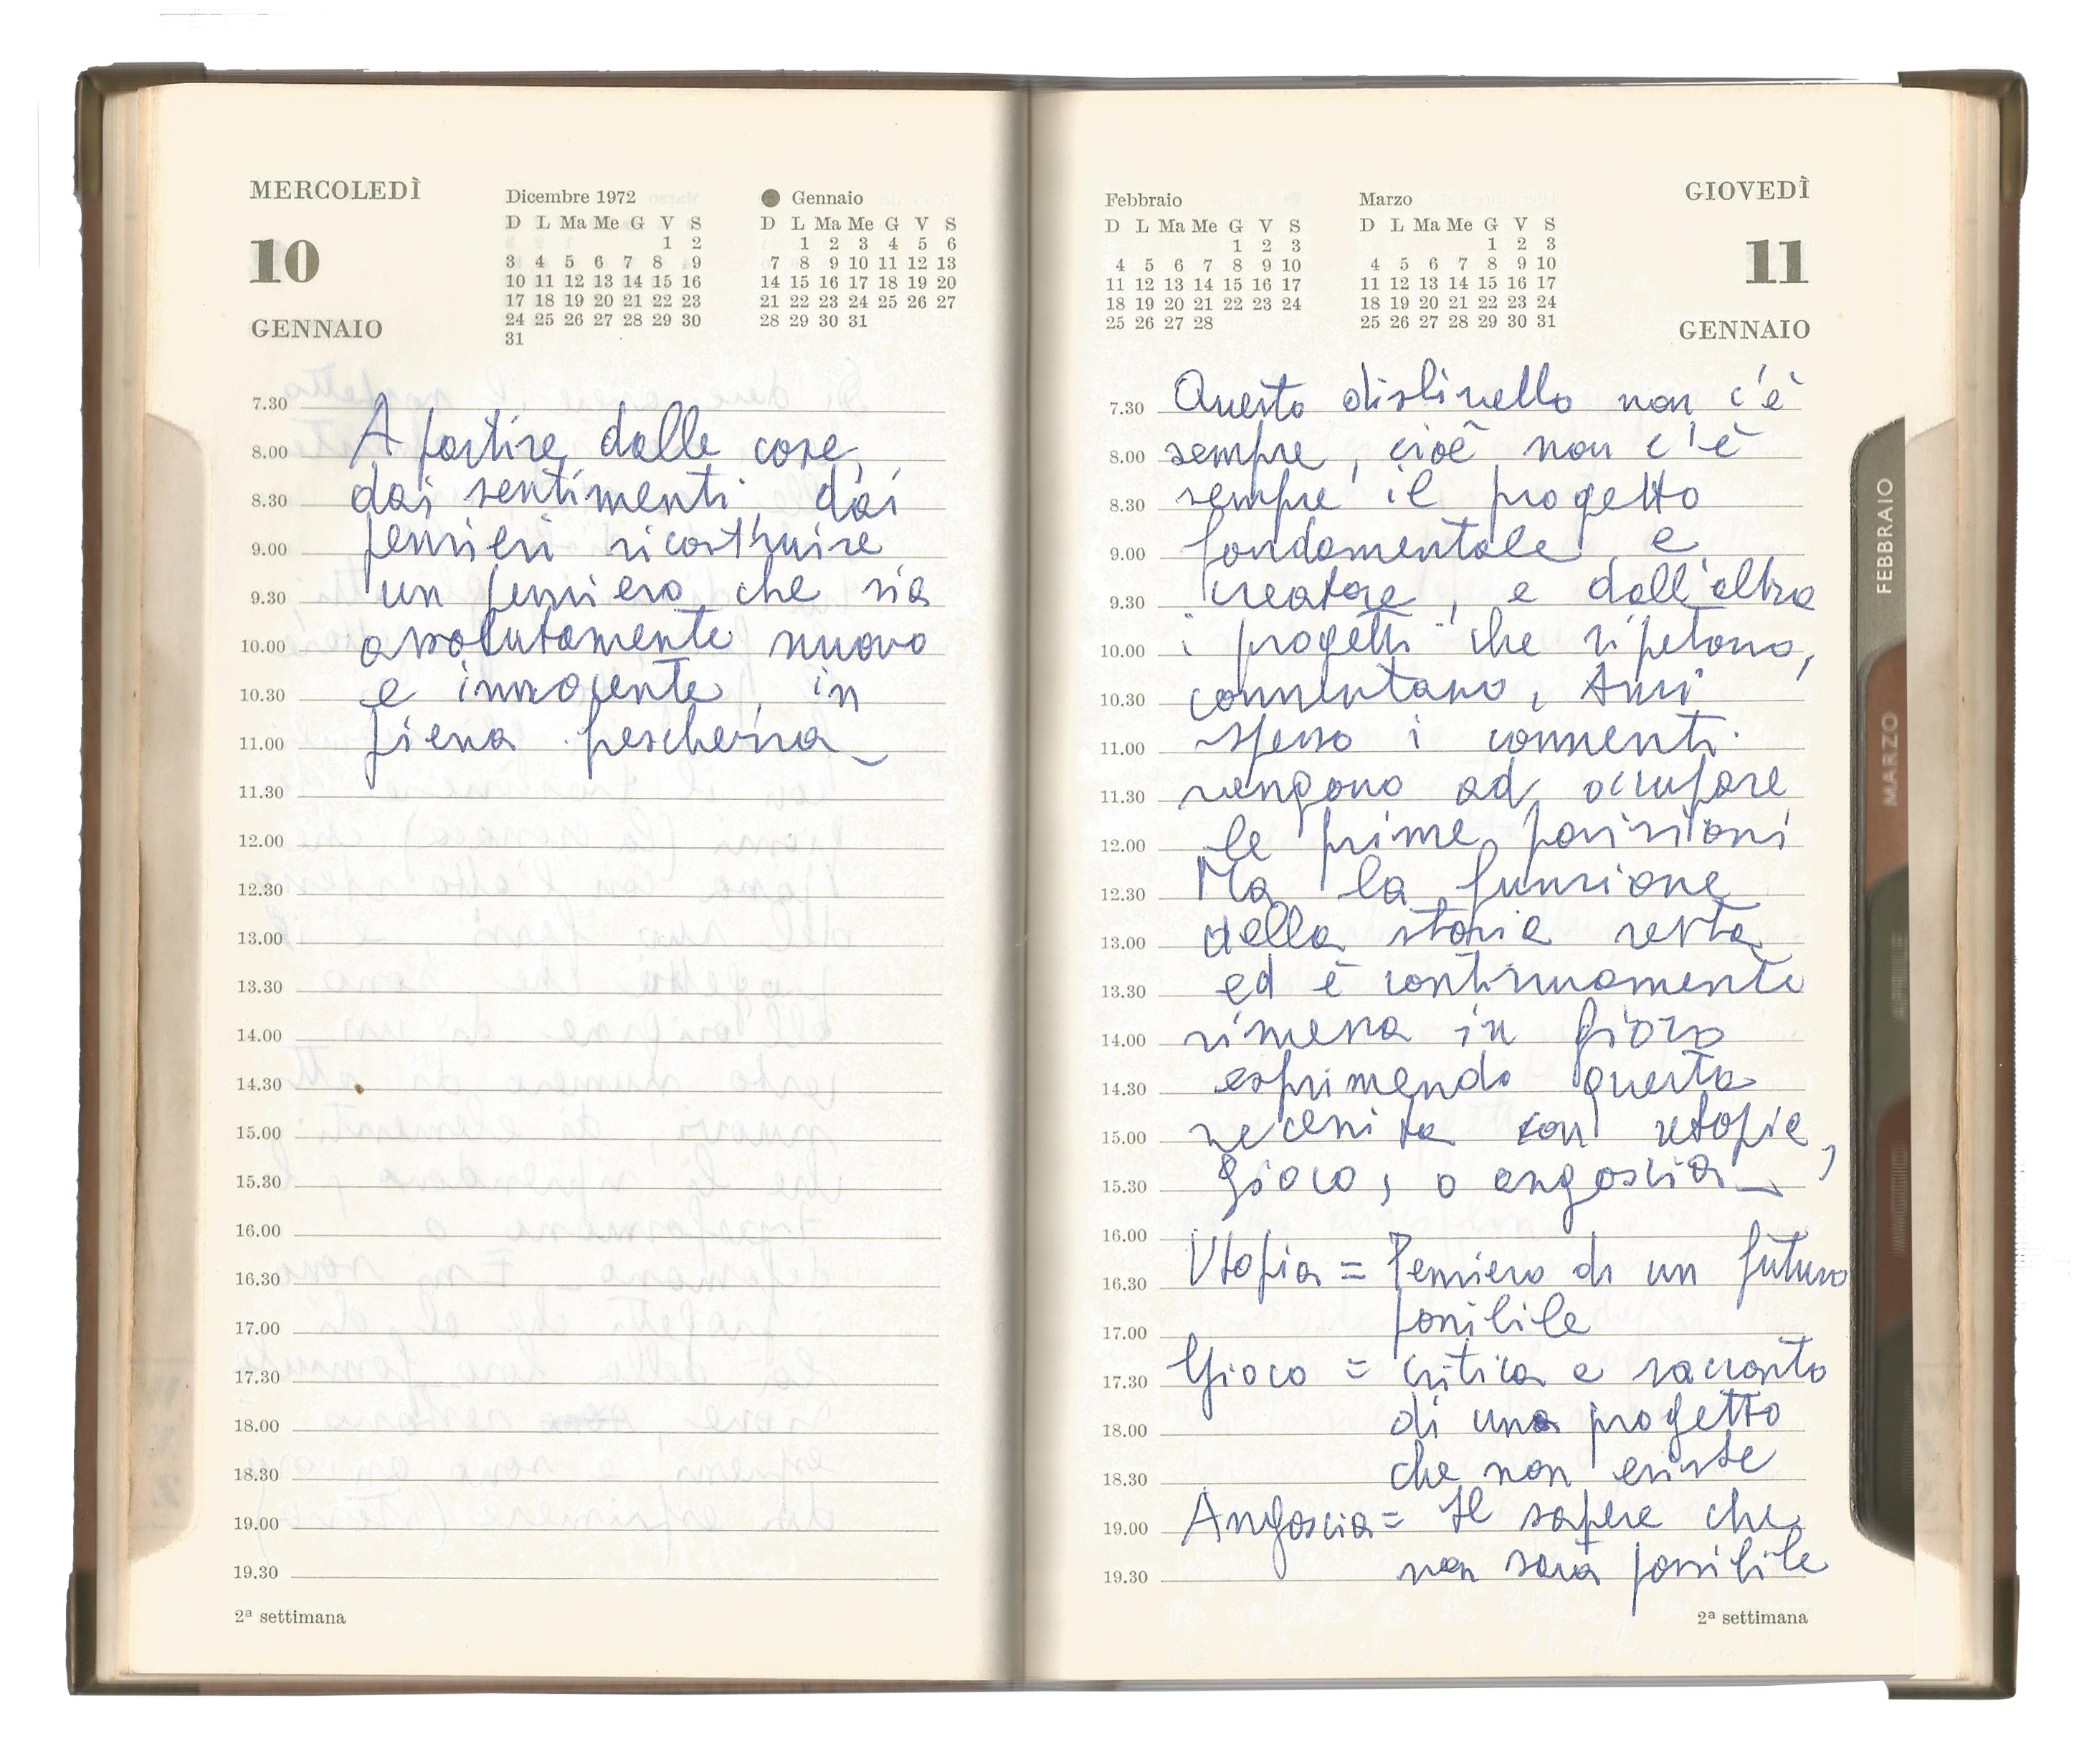 MERCOLEDÌ
10
GENNAIO
Dicembre 1972
D L Ma Me G V S
1 2
3 4 5 6 7 8 9
10 11 12 13 14 15 16
17 18 19 20 21 22 23
24 25 26 27 28 29 30
31
Gennaio
D L Ma Me G V S
1 2 3 4 5 6
7 8 9 10 11 12 13
14 15 16 17 18 19 20
21 22 23 24 25 26 27
28 29 30 31
7.30
8.00 A partire dalle cose,
8.30 dai sentimenti, dai
9.00 pensieri ricostruire
9.30 un pensiero che sia
10.00 assolutamente nuovo
10.30 e innocente, in
11.00 piena pescheria
11.30
12.00
12.30
13.00
13.30
14.00
14.30
15.00
15.30
16.00
16.30
17.00
17.30
18.00
18.30
19.00
19.30
2ª settimana
Febbraio
D L Ma Me G V S
1 2 3
4 5 6 7 8 9 10
11 12 13 14 15 16 17
18 19 20 21 22 23 24
25 26 27 28
Marzo
D L Ma Me G V S
1 2 3
4 5 6 7 8 9 10
11 12 13 14 15 16 17
18 19 20 21 22 23 24
25 26 27 28 29 30 31
GIOVEDÌ
11
GENNAIO
7.30 Questo distinello non c'è
8.00 sempre, cioè non c'è
8.30 sempre il progetto
9.00 fondamentale e
9.30 creatore, e dall'altra
10.00 i progetti che ripetono,
10.30 commentano, Anzi
11.00 spesso i commenti
11.30 vengono ad occupare
12.00 le prime posizioni
12.30 Ma la funzione
13.00 della storia resta
13.30 ed è continuamente
14.00 rimessa in gioco
14.30 esprimendo questa
15.00 necessita con utopia,
15.30 gioco, o angoscia
16.00
16.30 Utopia = Pensiero di un futuro
17.00 possibile
17.30 Gioco = critica e racconto
18.00 di una progetto
18.30 che non esiste
19.00 Angoscia = Il sapere che
19.30 non sarà possibile
2ª settimana
FEBBRAIO
MARZO
APRILE